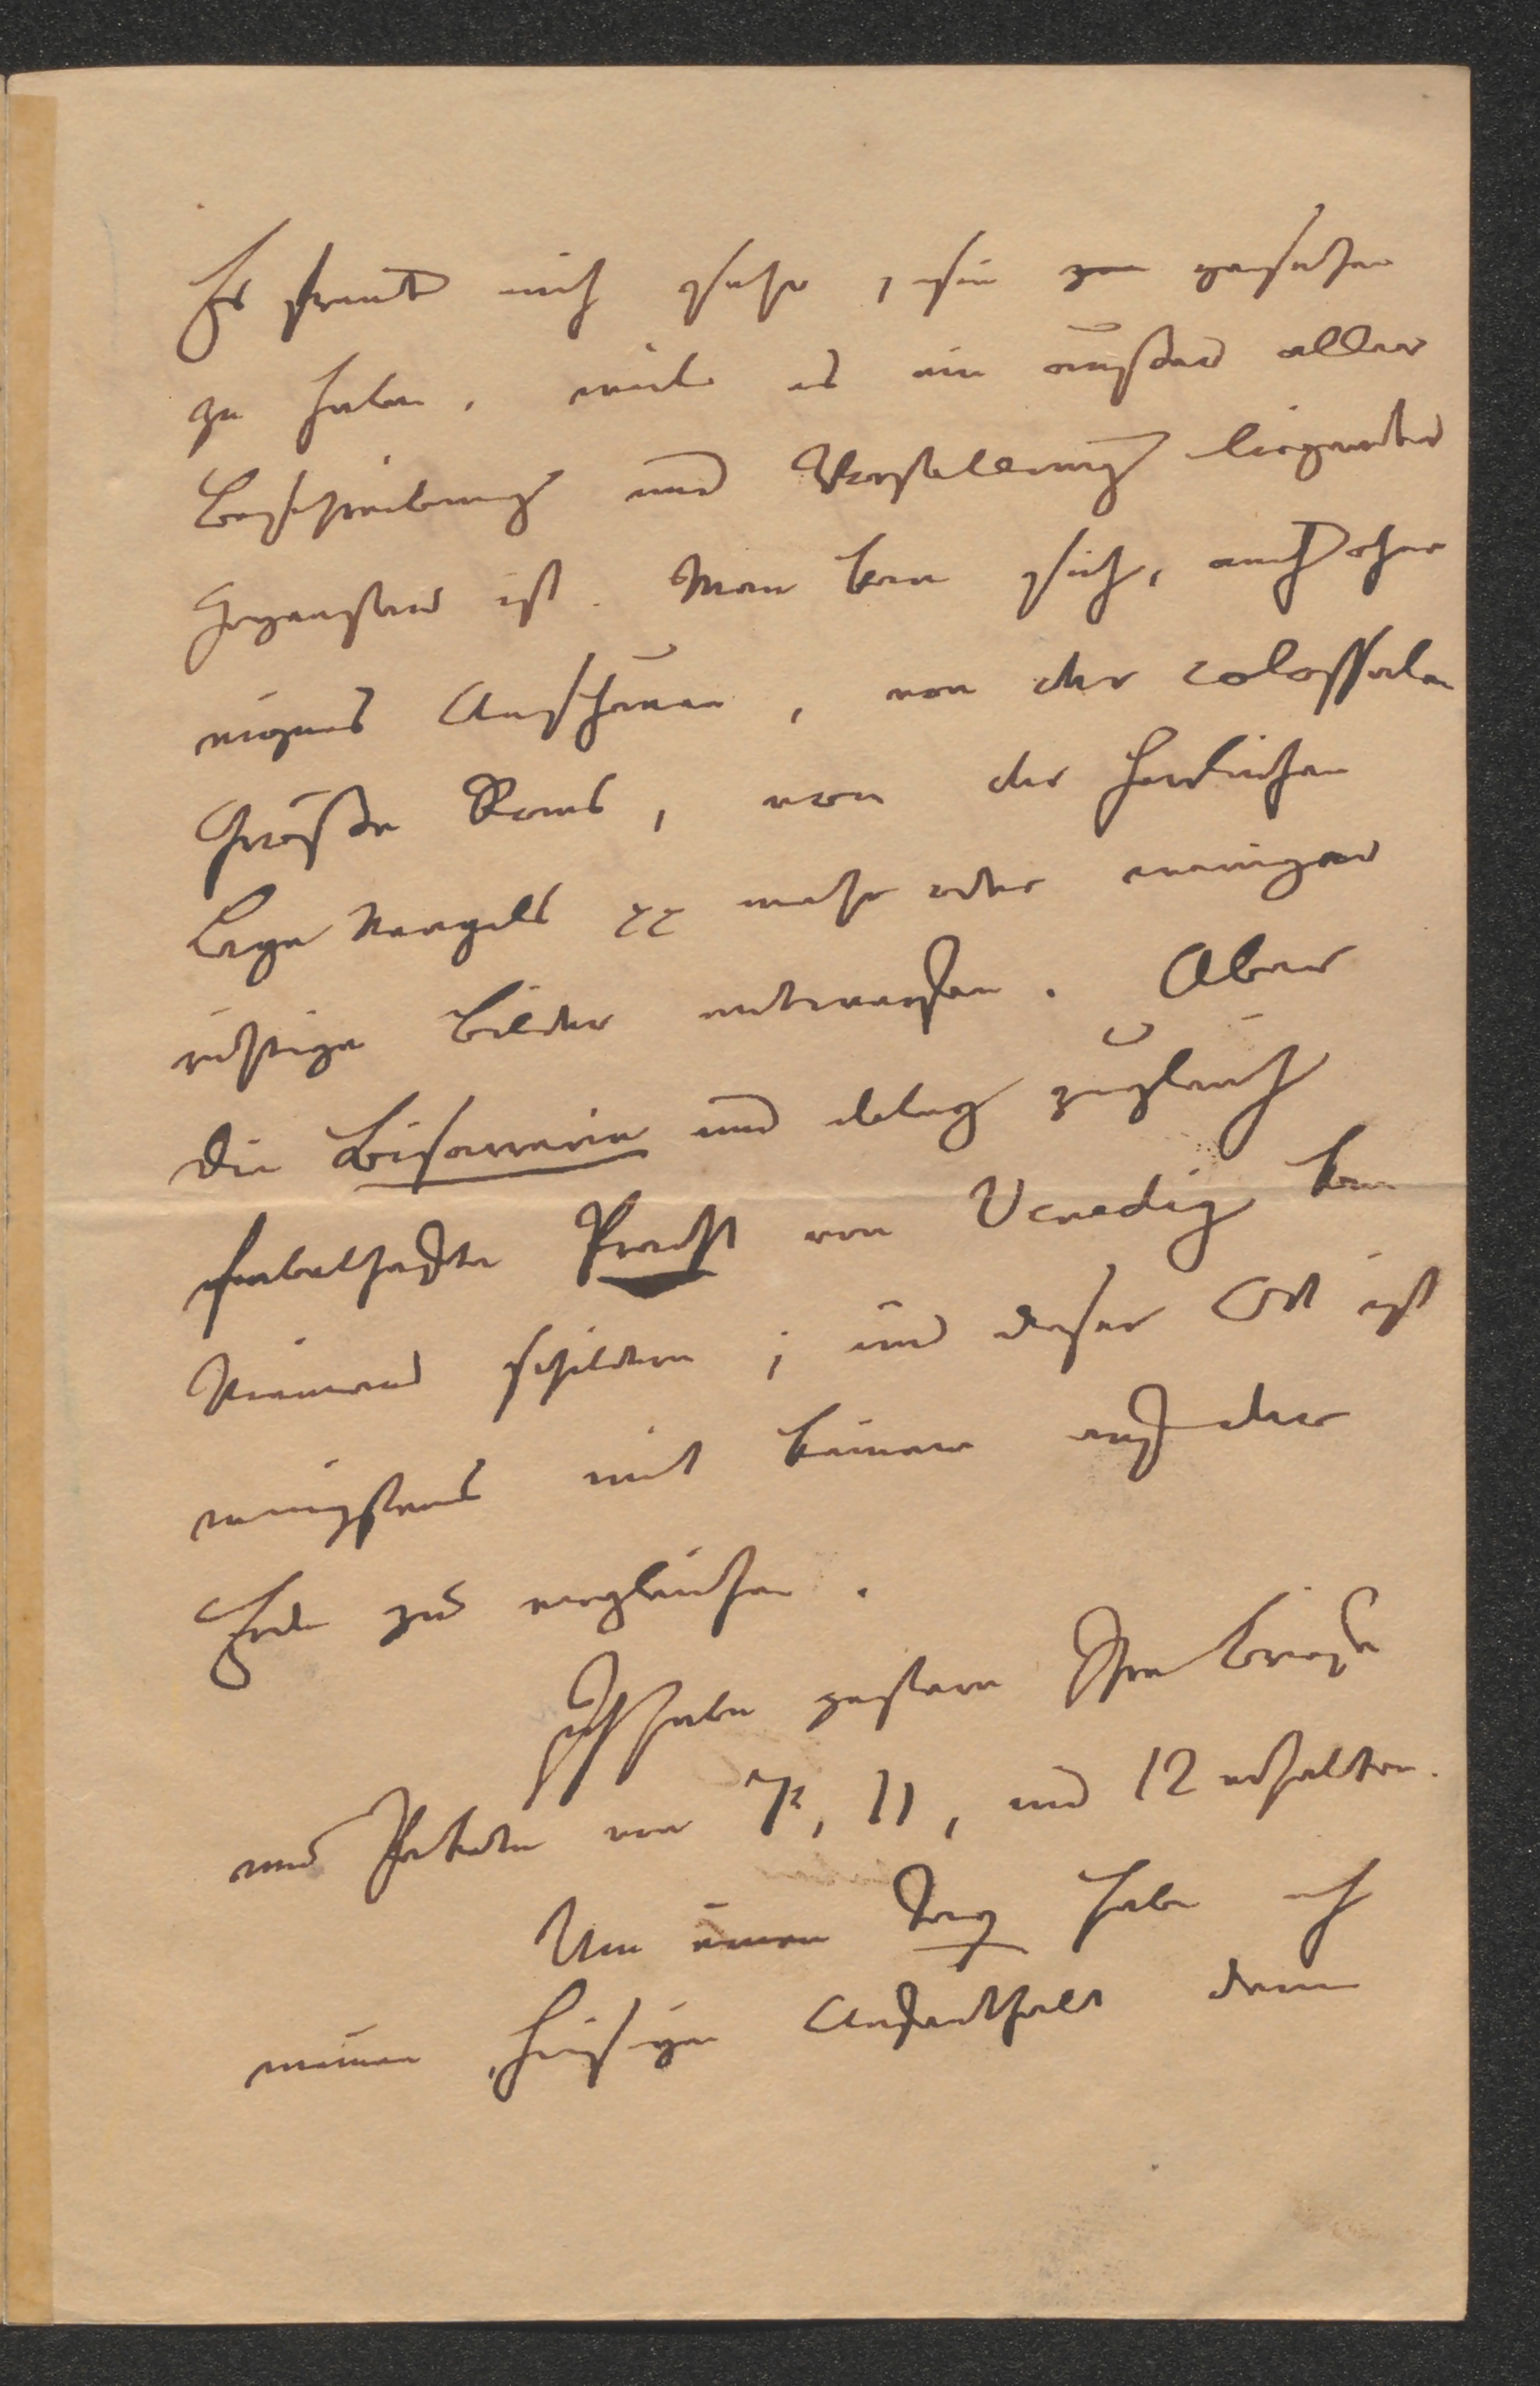 Es freut mich sehr, sie gesehen
zu haben, weil es ein außer aller
Beschreibung und Vorstellung liegender
Gegenstand ist. Man kan sich, auch ohne
eignes Anschauen, von der colossalen
Größe Roms, von der herrlichen
Lage Neapels pp mehr oder weniger
richtige Bilder entwerfen. Aber
die Bisarrerie und zugleich
fabelhafte Pracht von Venedig kan
Niemand schildern; und dieser Ort ist
wenigstens mit keinem auf der
Erde zu vergleichen.
Ich habe gestern Ihre Briefe
und Pakete von 7, 11, und 12 erhalten.
Um einen Tag habe ich
meinen hiesigen Aufenthalt